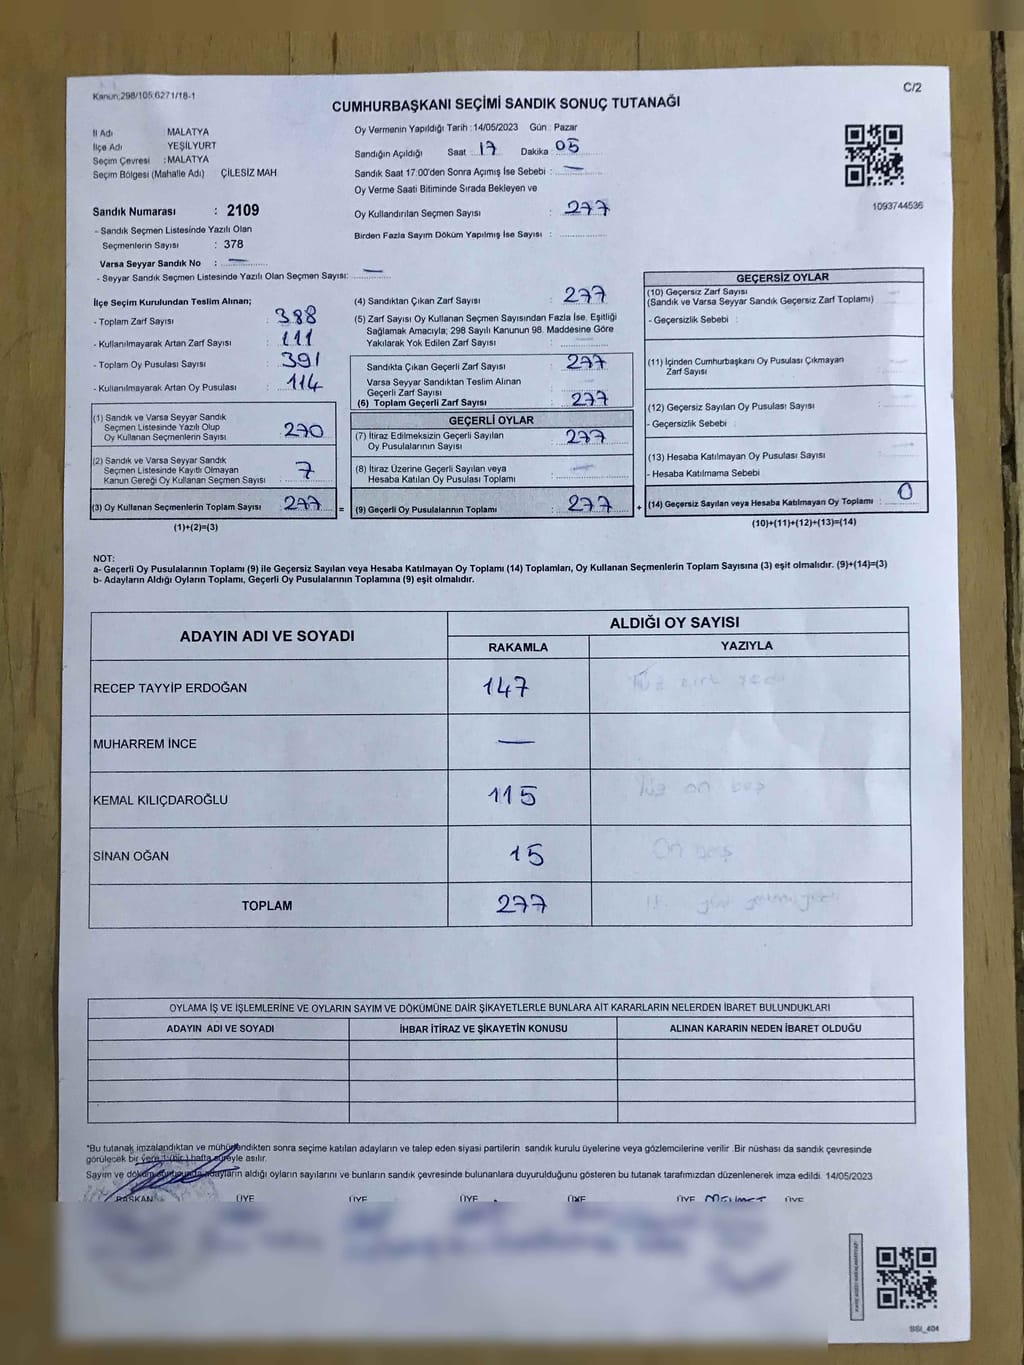 Kanun;298/105;6271/18-1
C/2
CUMHURBAŞKANI SEÇİMİ SANDIK SONUÇ TUTANAĞI
İl Adı MALATYA
İlçe Adı YEŞİLYURT
Seçim Çevresi : MALATYA
Seçim Bölgesi (Mahalle Adı) ÇİLESİZ MAH
Sandık Numarası : 2109
- Sandık Seçmen Listesinde Yazılı Olan
Seçmenlerin Sayısı : 378
Varsa Seyyar Sandık No : —
- Seyyar Sandık Seçmen Listesinde Yazılı Olan Seçmen Sayısı: —
Oy Vermenin Yapıldığı Tarih : 14/05/2023 Gün : Pazar
Sandığın Açıldığı Saat 17 Dakika 05
Sandık Saat 17:00'den Sonra Açımış İse Sebebi : —
Oy Verme Saati Bitiminde Sırada Bekleyen ve
Oy Kullandırılan Seçmen Sayısı : 277
Birden Fazla Sayım Döküm Yapılmış İse Sayısı :
1093744536
İlçe Seçim Kurulundan Teslim Alınan;
- Toplam Zarf Sayısı : 388
- Kullanılmayarak Artan Zarf Sayısı : 111
- Toplam Oy Pusulası Sayısı : 391
- Kullanılmayarak Artan Oy Pusulası : 114
(1) Sandık ve Varsa Seyyar Sandık
Seçmen Listesinde Yazılı Olup
Oy Kullanan Seçmenlerin Sayısı : 270
(2) Sandık ve Varsa Seyyar Sandık
Seçmen Listesinde Kayıtlı Olmayan
Kanun Gereği Oy Kullanan Seçmen Sayısı : 7
(3) Oy Kullanan Seçmenlerin Toplam Sayısı : 277 =
(1)+(2)=(3)
(4) Sandıktan Çıkan Zarf Sayısı : 277
(5) Zarf Sayısı Oy Kullanan Seçmen Sayısından Fazla İse, Eşitliği
Sağlamak Amacıyla; 298 Sayılı Kanunun 98. Maddesine Göre
Yakılarak Yok Edilen Zarf Sayısı :
Sandıkta Çıkan Geçerli Zarf Sayısı : 277
Varsa Seyyar Sandıktan Teslim Alınan
Geçerli Zarf Sayısı
(6) Toplam Geçerli Zarf Sayısı : 277
GEÇERLİ OYLAR
(7) İtiraz Edilmeksizin Geçerli Sayılan
Oy Pusulasının Sayısı : 277
(8) İtiraz Üzerine Geçerli Sayılan veya
Hesaba Katılan Oy Pusulası Toplamı : —
(9) Geçerli Oy Pusulalarının Toplamı : 277 +
GEÇERSİZ OYLAR
(10) Geçersiz Zarf Sayısı
(Sandık ve Varsa Seyyar Sandık Geçersiz Zarf Toplamı)
- Geçersizlik Sebebi :
(11) İçinden Cumhurbaşkanı Oy Pusulası Çıkmayan
Zarf Sayısı
(12) Geçersiz Sayılan Oy Pusulası Sayısı
- Geçersizlik Sebebi :
(13) Hesaba Katılmayan Oy Pusulası Sayısı
- Hesaba Katılmama Sebebi
(14) Geçersiz Sayılan veya Hesaba Katılmayan Oy Toplamı : 0
(10)+(11)+(12)+(13)=(14)
NOT:
a- Geçerli Oy Pusulalarının Toplamı (9) ile Geçersiz Sayılan veya Hesaba Katılmayan Oy Toplamı (14) Toplamları, Oy Kullanan Seçmenlerin Toplam Sayısına (3) eşit olmalıdır. (9)+(14)=(3)
b- Adayların Aldığı Oyların Toplamı, Geçerli Oy Pusulalarının Toplamına (9) eşit olmalıdır.
ADAYIN ADI VE SOYADI
ALDIĞI OY SAYISI
RAKAMLA YAZIYLA
RECEP TAYYİP ERDOĞAN 147 Yüz kırk yedi
MUHARREM İNCE —
KEMAL KILIÇDAROĞLU 115 Yüz on beş
SİNAN OĞAN 15 On beş
TOPLAM 277
OYLAMA İŞ VE İŞLEMLERİNE VE OYLARIN SAYIM VE DÖKÜMÜNE DAİR ŞİKAYETLERLE BUNLARA AİT KARARLARIN NELERDEN İBARET BULUNDUKLARI
ADAYIN ADI VE SOYADI İHBAR İTİRAZ VE ŞİKAYETİN KONUSU ALINAN KARARIN NEDEN İBARET OLDUĞU
*Bu tutanak imzalandıktan ve mühürlendikten sonra seçime katılan adayların ve talep eden siyasi partilerin sandık kurulu üyelerine veya gözlemcilerine verilir. Bir nüshası da sandık çevresinde
görülecek bir yere 1 (bir) hafta süreyle asılır.
Sayım ve döküm sonucunda adayların aldığı oyların sayılarını ve bunların sandık çevresinde bulunanlara duyurulduğunu gösteren bu tutanak tarafımızdan düzenlenerek imza edildi. 14/05/2023
BAŞKAN ÜYE ÜYE ÜYE ÜYE ÜYE MEHMET ÜYE
SSI_404